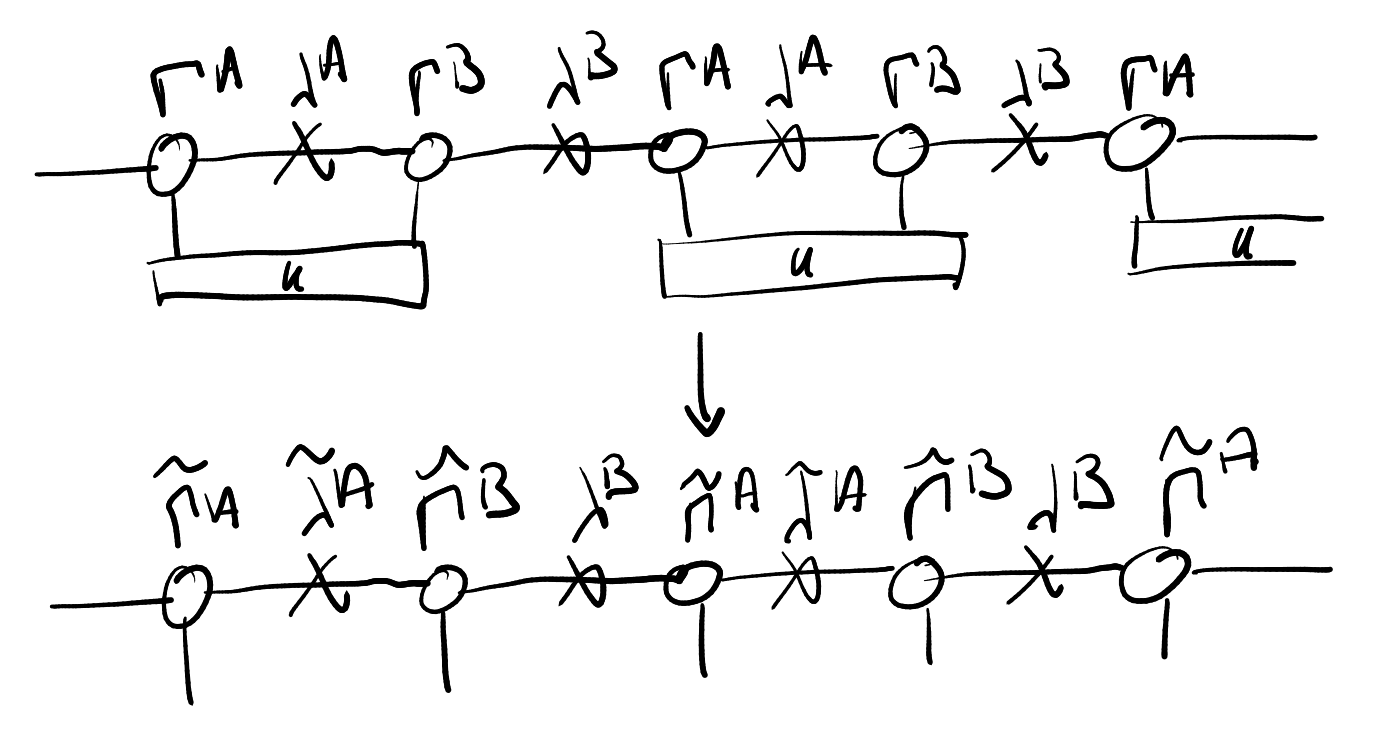 Γ^A λ^A Γ^B λ^B Γ^A λ^A Γ^B λ^B Γ^A
u u u
Γ̃^A λ̃^A Γ̃^B λ^B Γ̃^A λ̃^A Γ̃^B λ^B Γ̃^A